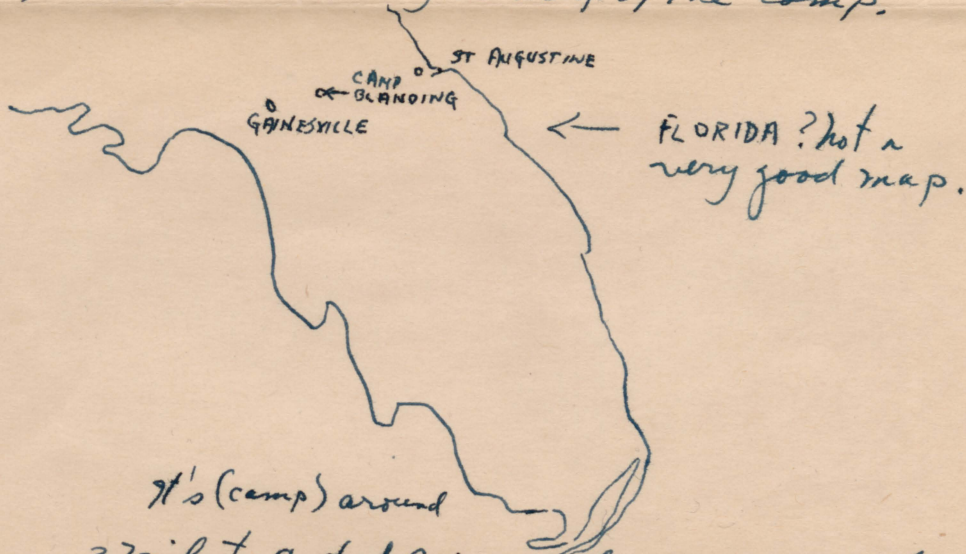 the camp.
ST AUGUSTINE
CAMP
BLANDING
GAINESVILLE
FLORIDA? not a
very good map.
It's (camp) around